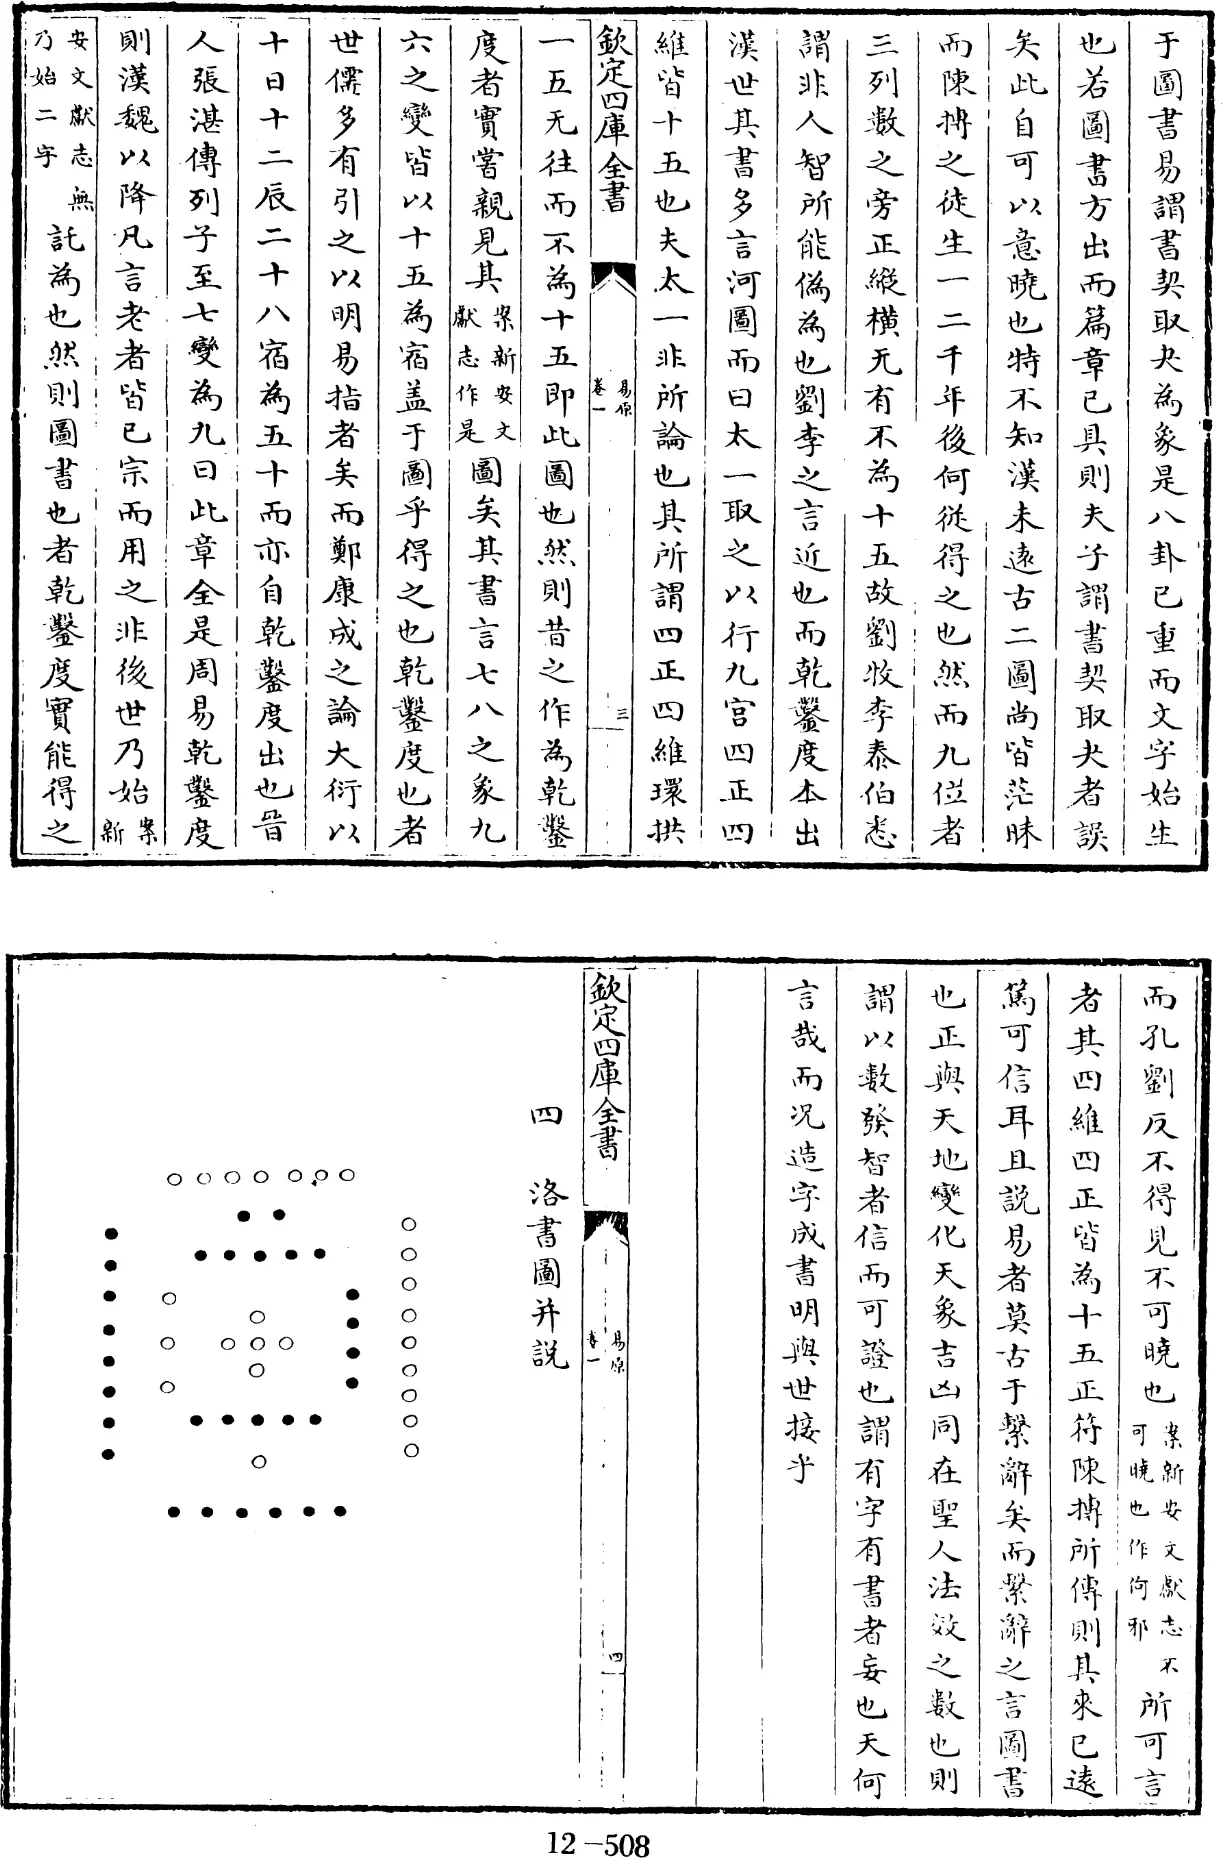 于圖書易謂書契取夬為象是八卦已重而文字始生
也若圖書方出而篇章已具則夫子謂書契取夬者誤
矣此自可以意曉也特不知漢未逺古二圖尚皆茫昧
而陳摶之徒生一二千年後何從得之也然而九位者
三列數之旁正縱横无有不為十五故劉牧李泰伯悉
謂非人智所能偽為也劉李之言近也而乾鑿度本出
漢世其書多言河圖而曰太一取之以行九宫四正四
維皆十五也夫太一非所論也其所謂四正四維環拱
欽定四庫全書
易原
卷一
三
一五无往而不為十五即此圖也然則昔之作為乾鑿
度者實嘗親見其案新安文獻志作是圖矣其書言七八之象九
六之變皆以十五為宿葢于圖乎得之也乾鑿度也者
世儒多有引之以明易指者矣而鄭康成之論大衍以
十日十二辰二十八宿為五十而亦自乾鑿度出也晉
人張湛傳列子至七變為九曰此章全是周易乾鑿度
則漢魏以降凡言老者皆已宗而用之非後世乃始案新
安文獻志無乃始二字託為也然則圖書也者乾鑿度實能得之
而孔劉反不得見不可曉也案新安文獻志不可曉也作何邪所可言
者其四維四正皆為十五正符陳摶所傳則其來已逺
篤可信耳且説易者莫古于繫辭矣而繫辭之言圖書
也正與天地變化天象吉凶同在聖人法效之數也則
謂以數發智者信而可證也謂有字有書者妄也天何
言哉而况造字成書明與世接乎
欽定四庫全書
易原
卷一
四
四 洛書圖并説
12-508